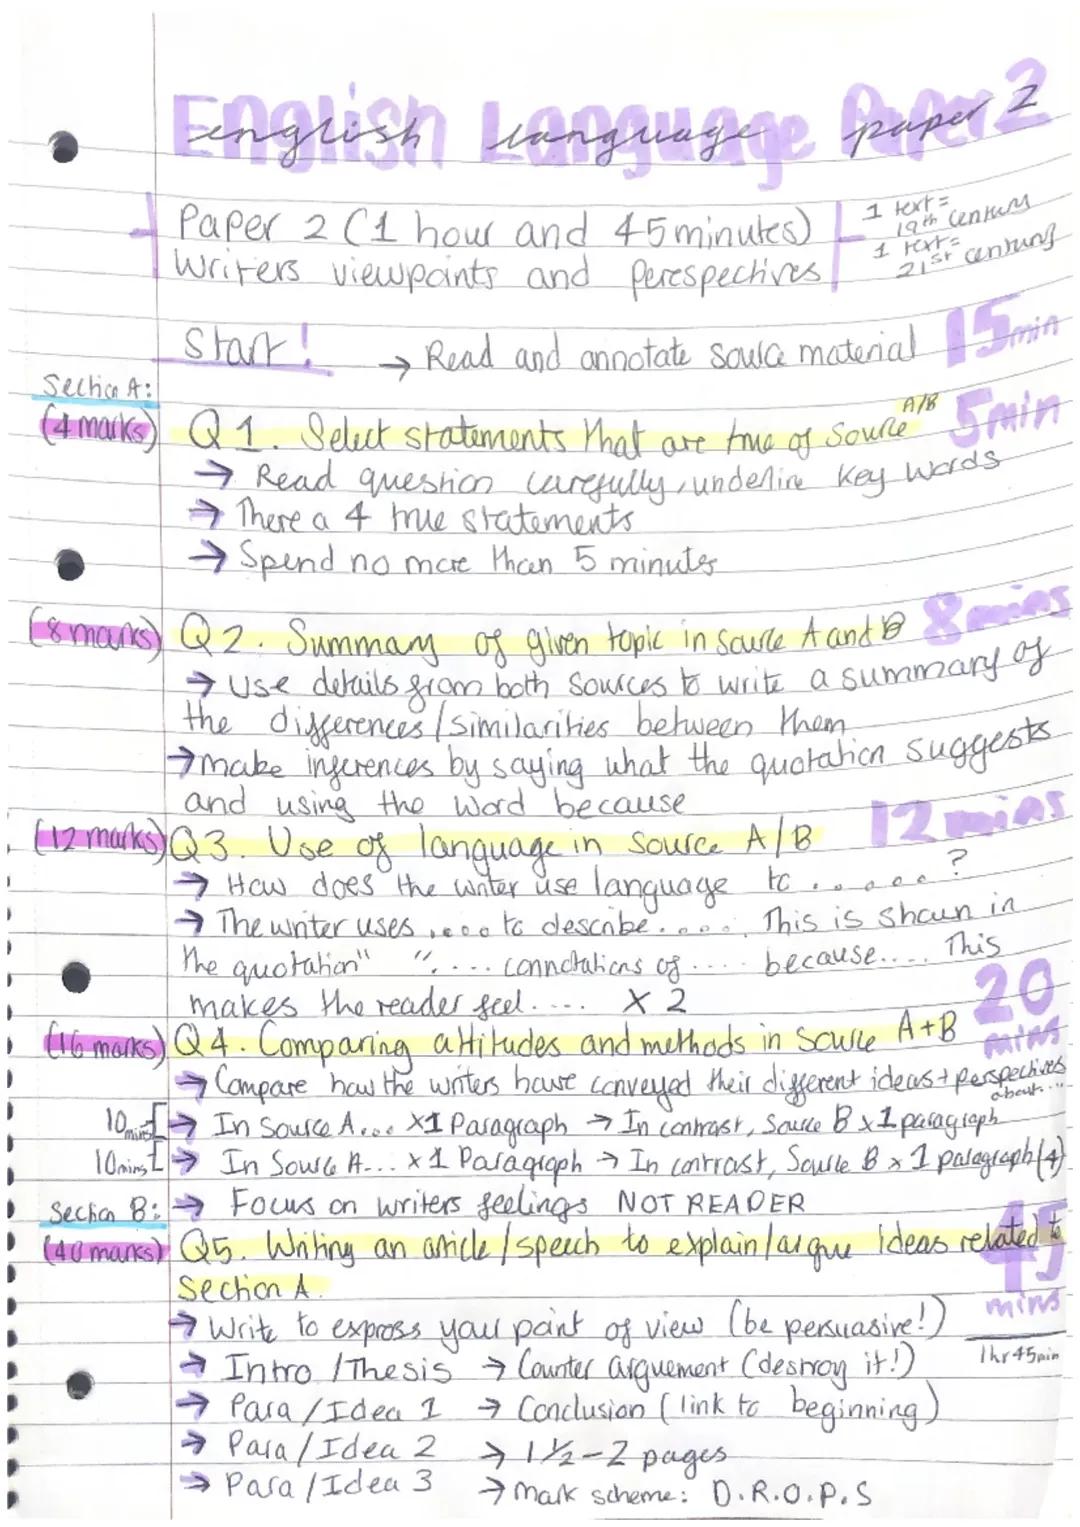 English Language Paper 2
english language paper 2
Paper 2 (1 hour and 45 minutes)
Writers viewpoints and perespectives
1 text =
19th century
1 text =
21st century
Start!
→ Read and annotate source material
15 min
Section A:
(4 marks)
Q1. Select statements that are true of Source A/B
5 min
→ Read question carefully, underline key words
→ There a 4 true statements
→ Spend no more than 5 minutes
(8 marks)
Q2. Summary of given topic in source A and B
8 mins
→ Use details from both sources to write a summary of
the differences/similarities between them
→ make inferences by saying what the quotation suggests
and using the word because
(12 marks)
Q3. Use of language in source A/B
12 mins
→ How does the writer use language to ......?
→ The writer uses .... to describe ..... This is shown in
the quotation" ".... connotations of .... because.... This
makes the reader feel.... x 2
(16 marks)
Q4. Comparing attitudes and methods in source A+B
20 mins
→ Compare how the writers have conveyed their different ideas + perspectives about..."
10 mins → In Source A... x1 Paragraph → In contrast, Source B x1 paragraph
10mins → In Source A... x1 Paragraph → In contrast, Source B x 1 paragraph (4)
→ Focus on writers feelings NOT READER
Section B:
(40 marks)
Q5. Writing an article/speech to explain/argue ideas related to
Section A.
45 mins
→ Write to express your point of view (be persuasive!)
1hr 45min
→ Intro/Thesis → Counter arguement (destroy it!)
→ Para/Idea 1 → Conclusion (link to beginning)
→ Para/Idea 2 → 1 1/2-2 pages
→ Para/Idea 3 → mark scheme: D.R.O.P.S